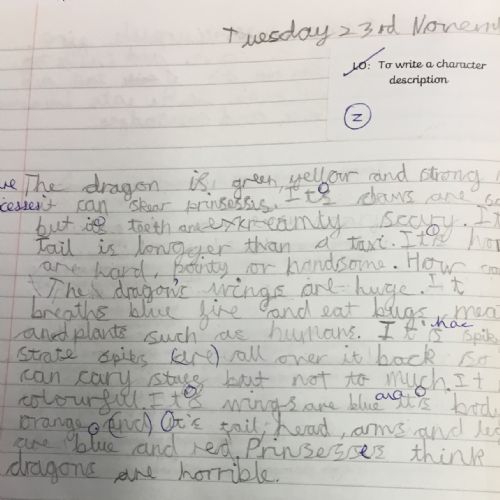 Tuesday 23rd Novem
LO: To write a character
description
Z
The dragon is, green, yellow and strong
it can skear prinsesis. It's claws are sc
but its teeth are extreamly scary. I
tail is longger than a taxi. It's hor
are hard, pointy or handsome. How
The dragon's wings are huge. It
breaths blue fire and eat bugs, mea
and plants such as humans. It's has spik
state spikes (are) all over it back so
can cary stuff but not to much. It
colourful. It's wings are blue and it's bod
orange. (and) It's tail, head, arms and le
are blue and red. Prinseses think
dragons are horrible.